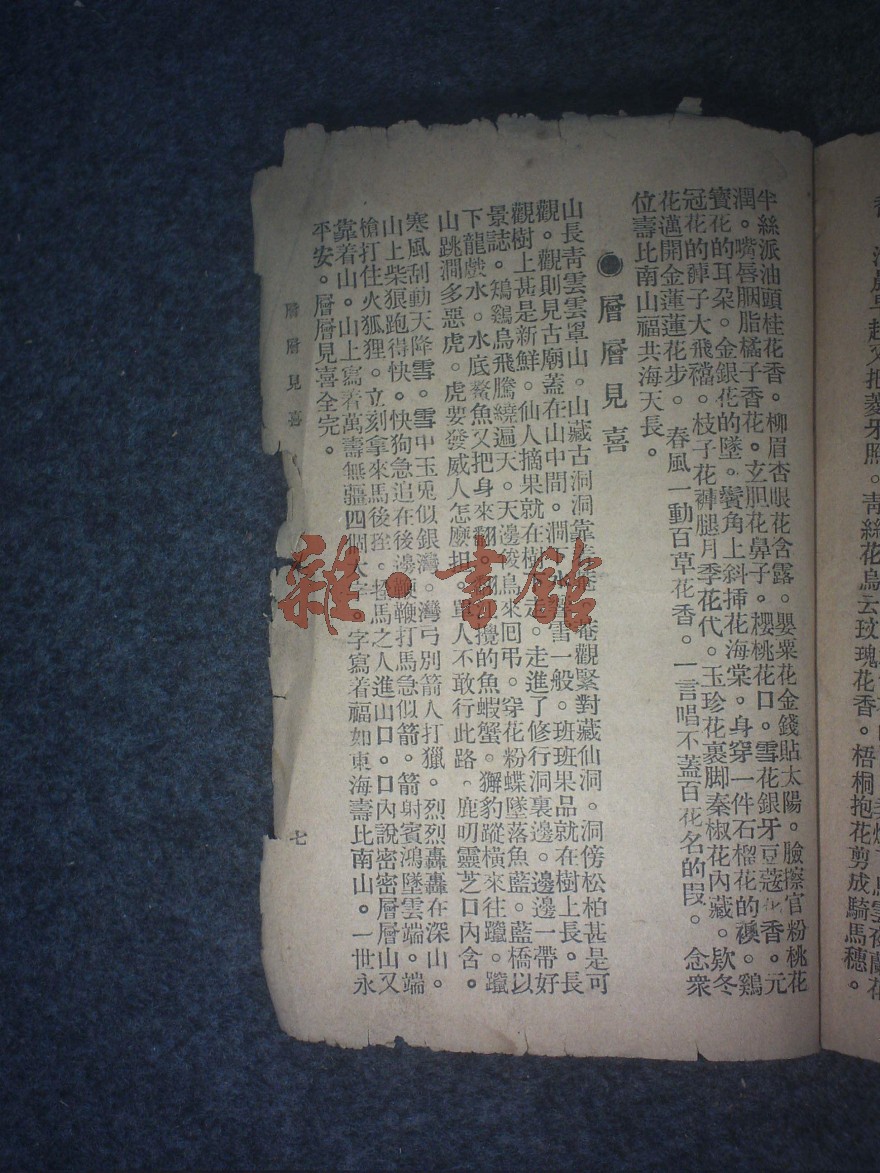 半絲派油頭桂花香。柳眉杏眼花含露。嬰粟花金錢貼太陽。臉擦官粉桃花
潤。嘴唇胭脂橘子香花。玄胆花鼻子。櫻桃花口。雪花銀牙豆蔻花香。元
寶花的耳朵。金銀花的墜。鬢角上斜揷花海棠。身穿一件石榴花的襖。鷄
冠花的褲子大飛襠。枝子花褲腿月季花代。玉珍花裹脚秦椒花內藏。欵冬
花邁開金蓮蓮花步。春風一動百草花香。一言唱不蓋百花名的段。念衆
位壽比南山福共海天長。
●層層見喜
山長靑雲雲罩山。山藏古洞洞靠 觀緊對藏仙洞。洞傍松柏甚是可
觀。觀則見古廟蓋在山中間。澗 雪一般。班班果品就在樹上長。長
觀樹上甚是新鮮。仙人摘果就在樹 走。走進了修行洞裏邊。邊邊一帶好
景誌。鴙鷄烏飛騰繞遍天。天邊 鳥來回弔。穿花粉蝶墜落魚藍。藍橋以
下龍戲水。水底鰲魚又把身來翻。翻 攪的魚蝦蟹。獬豹蹤橫來往躥。躥
山跳澗多惡虎。虎要發威人怎麽担。單人不敢行此路。鹿叨靈芝口內含。
寒風刮動天降雪。雪中玉兎似銀灣。灣弓別箭人打獵。烈烈轟轟在深山。
山上柴狼跑得快。快狗急追在後邊 鞭打馬急似箭。箭射賓鴻墜雲端。端
槍打住火狐狸。立刻拿來馬後 馬之人進山口。口內說密密層層山又
靠着山。山上寫着萬壽無疆四個大字。字寫着福如東海壽比南山。一世永
平安。層層見喜全完。
層層見喜
七
雜·書館
靑絲花烏云玟瑰花香。梧桐抱花剪成騎馬穗。